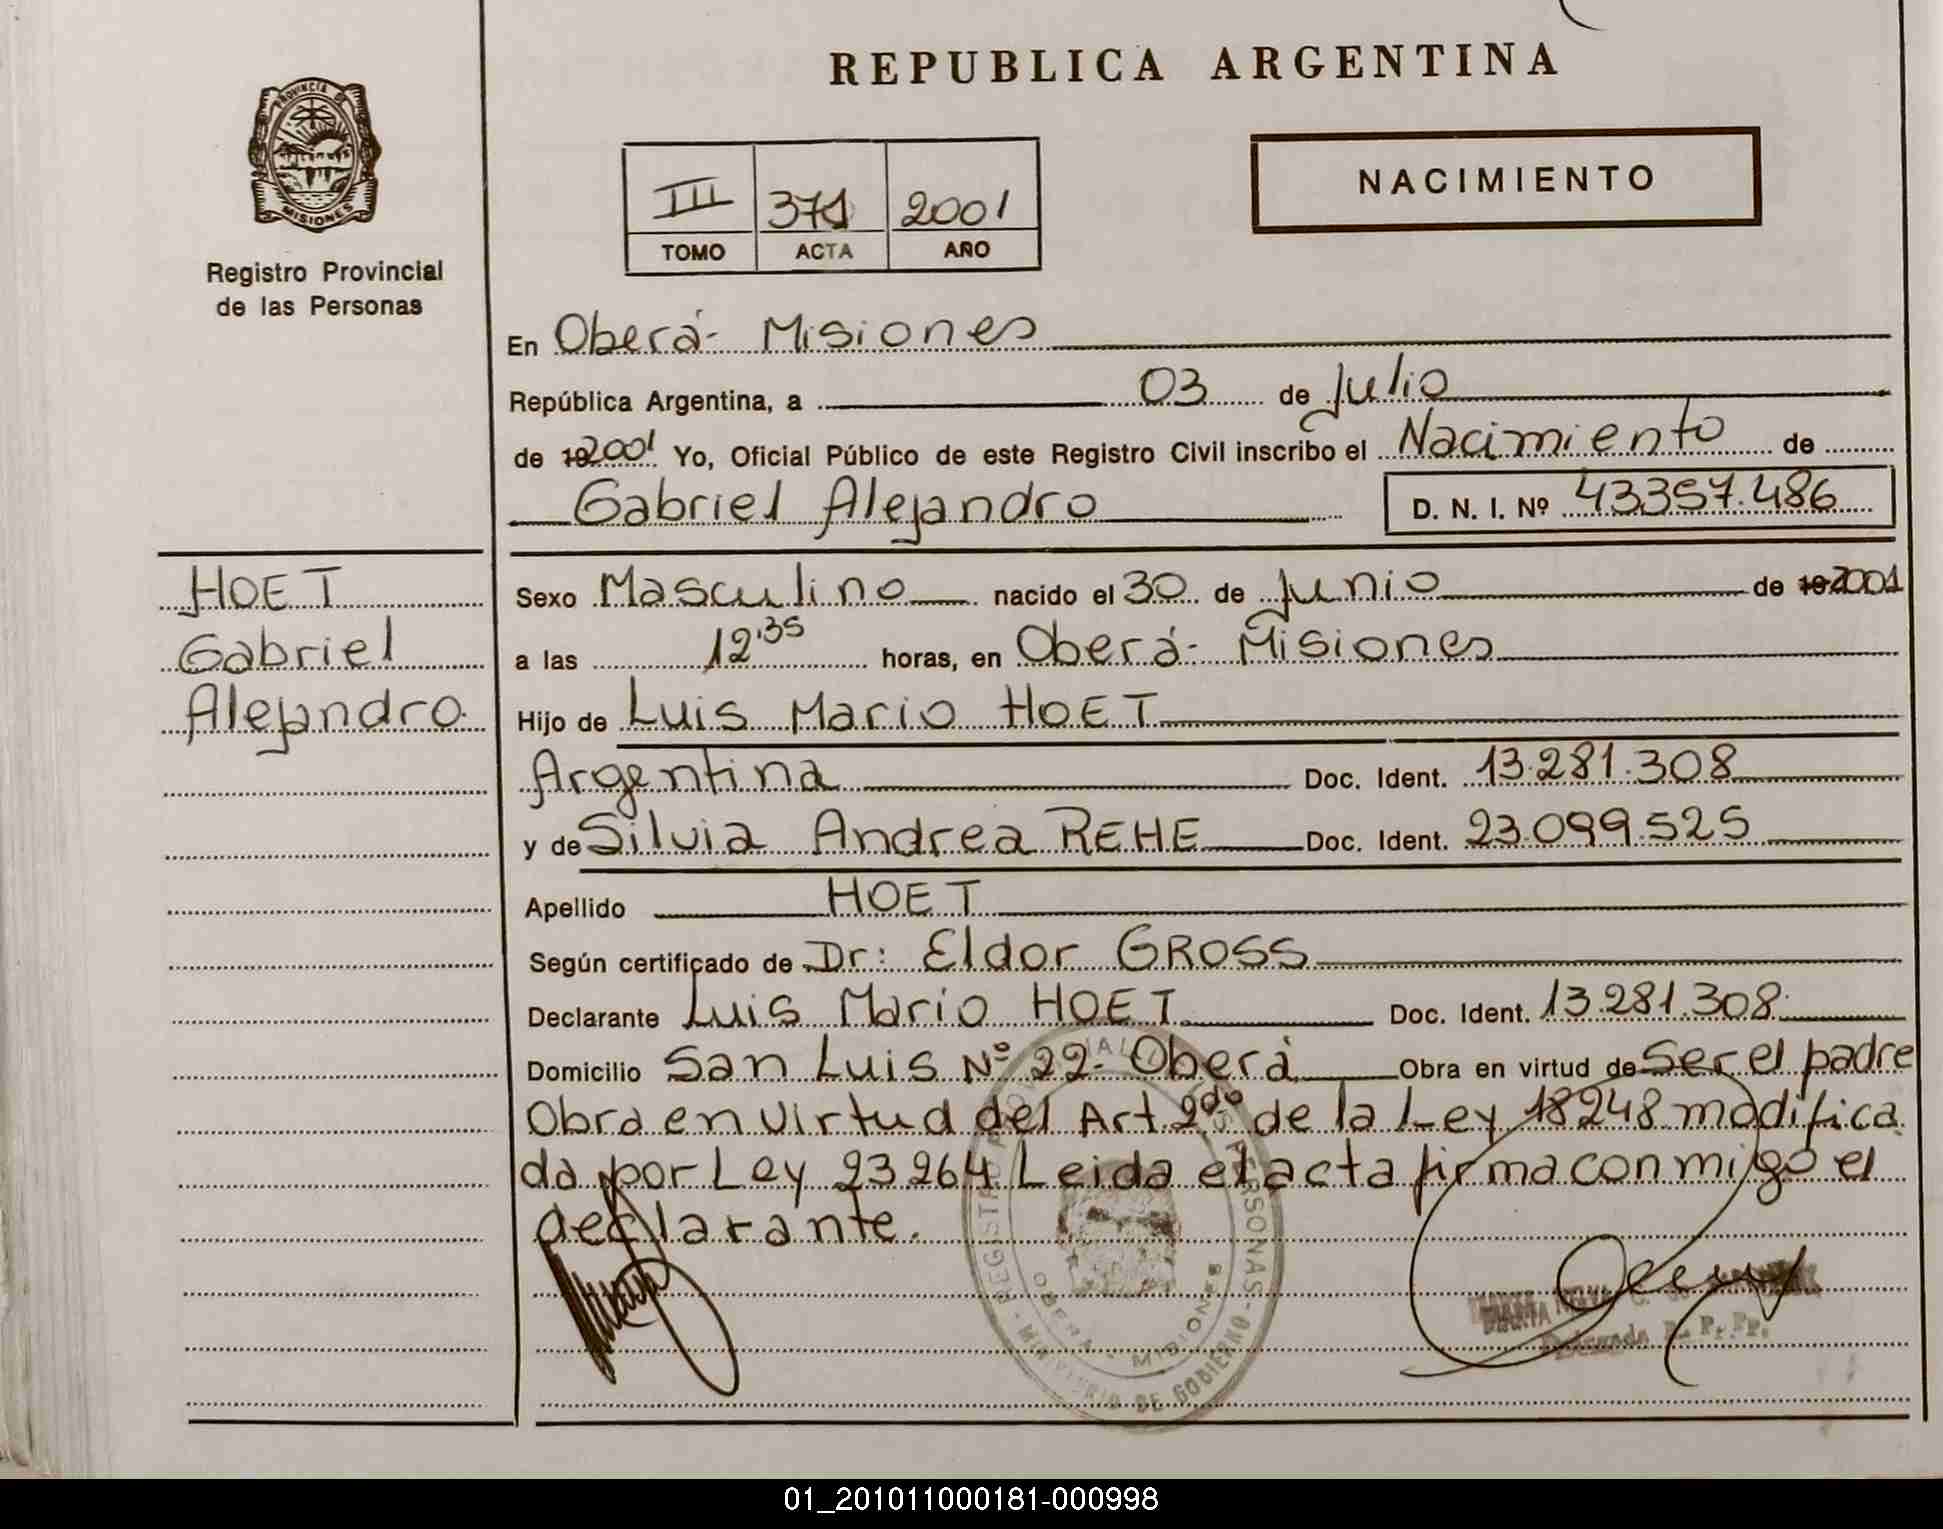 REPUBLICA ARGENTINA
PROVINCIA DE
MISIONES
Registro Provincial
de las Personas
III 371 2001
TOMO ACTA AÑO
NACIMIENTO
En Oberá- Misiones
República Argentina, a 03 de Julio
de 2001 Yo, Oficial Público de este Registro Civil inscribo el Nacimiento de
Gabriel Alejandro D. N. I. Nº 43357.486
HOET
Gabriel
Alejandro
Sexo Masculino nacido el 30 de Junio de 2001
a las 12'35 horas, en Oberá- Misiones
Hijo de Luis Mario HOET
Argentina Doc. Ident. 13.281.308
y de Silvia Andrea REHE Doc. Ident. 23.099.525
Apellido HOET
Según certificado de Dr: Eldor GROSS
Declarante Luis Mario HOET Doc. Ident. 13.281.308
Domicilio San Luis Nº 22- Oberá Obra en virtud de Ser el padre
Obra en virtud del Art 2do de la Ley 18248 modifica
da por Ley 23264 Leida el acta firma conmigo el
declarante.
OBERA - MISIONES
MINISTERIO DE GOBIERNO
01_201011000181-000998